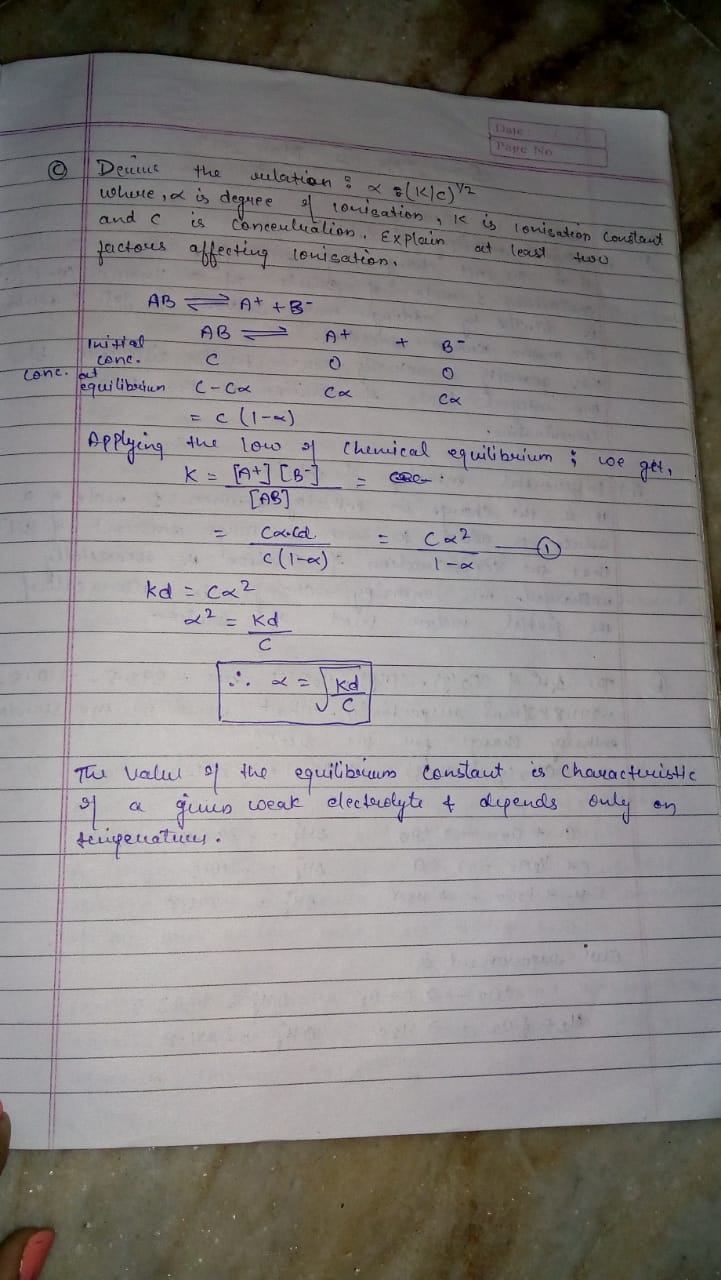 Date
Page No
C Derive the relation : α = (K/c)^1/2
where, α is degree of ionisation, K is ionisation constant
and c is concentration. Explain at least two
factors affecting ionisation.
AB ⇌ A+ + B-
AB ⇌ A+ + B-
Initial conc. C 0 0
conc. at equilibrium C-Cα Cα Cα
= C (1-α)
Applying the low of chemical equilibrium ; we get,
K = [A+] [B-] / [AB] =
= Cα.Cα / C(1-α) = Cα² / 1-α — ①
kd = Cα²
α² = Kd / C
∴ α = √Kd / C
The value of the equilibrium constant is characteristic
of a given weak electrolyte & depends only on
temperature.